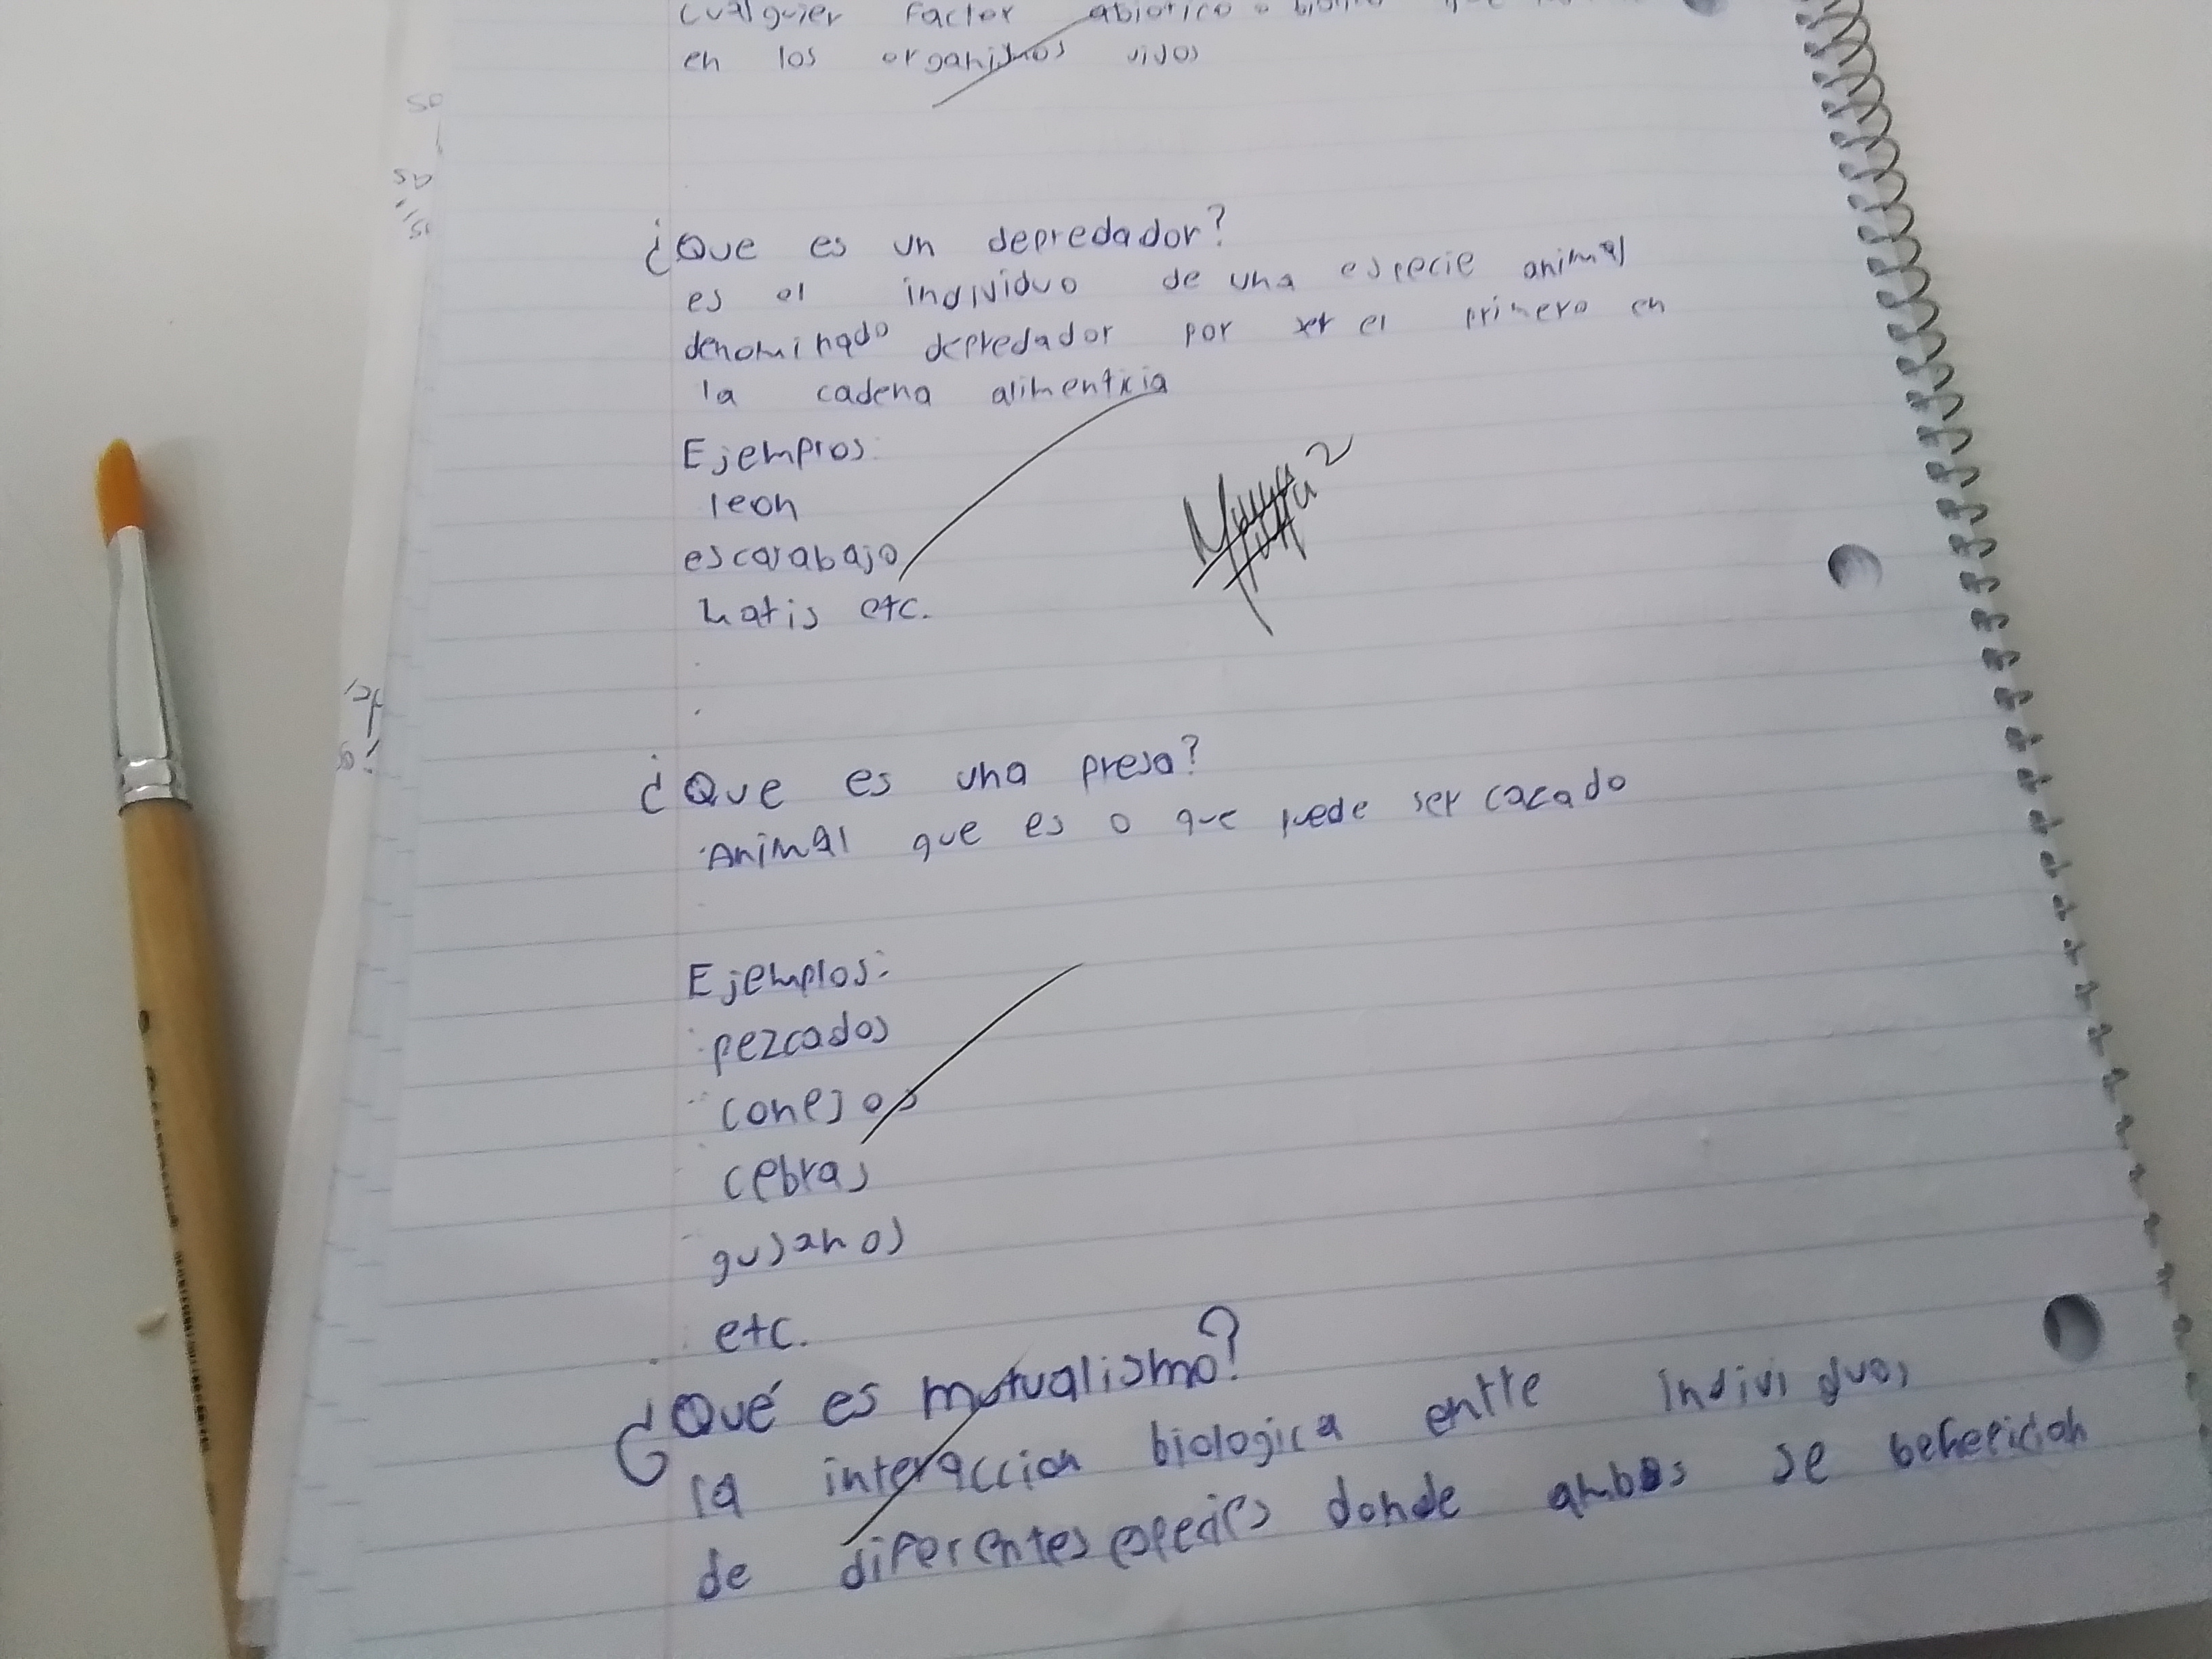 cualguier factor abiotico o
en los organismos vivos
¿Que es un depredador?
es el individuo de una especie animal
denominado depredador por ser el primero en
la cadena alimenticia
Ejemplos:
leon
escarabajo
matis etc.
¿Que es una presa?
Animal que es o que puede ser cacado
Ejemplos:
pezcados
conejos
cebras
gusanos
etc.
¿Qué es mutualismo?
la interaccion biologica entre individuos
de diferentes especies donde ambos se benefician